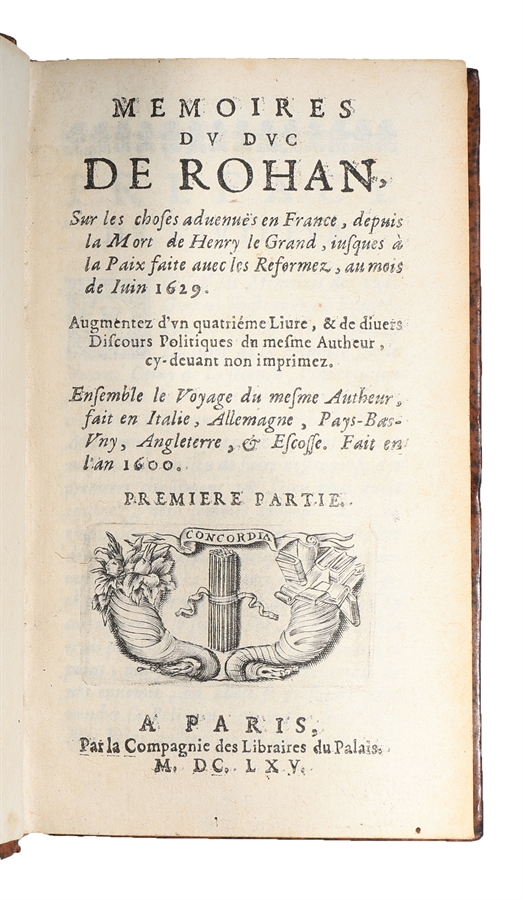 MEMOIRES
DV DVC
DE ROHAN,
Sur les choſes aduenuës en France, depuis
la Mort de Henry le Grand, iuſques à
la Paix faite auec les Reformez, au mois
de Iuin 1629.
Augmentez d'vn quatriéme Liure, & de diuers
Diſcours Politiques du meſme Autheur,
cy-deuant non imprimez.
Enſemble le Voyage du meſme Autheur,
fait en Italie, Allemagne, Pays-Bas-
Vny, Angleterre, & Eſcoſſe. Fait en
l'an 1600.
PREMIERE PARTIE.
CONCORDIA
A PARIS,
Par la Compagnie des Libraires du Palais.
M. DC. LXV.